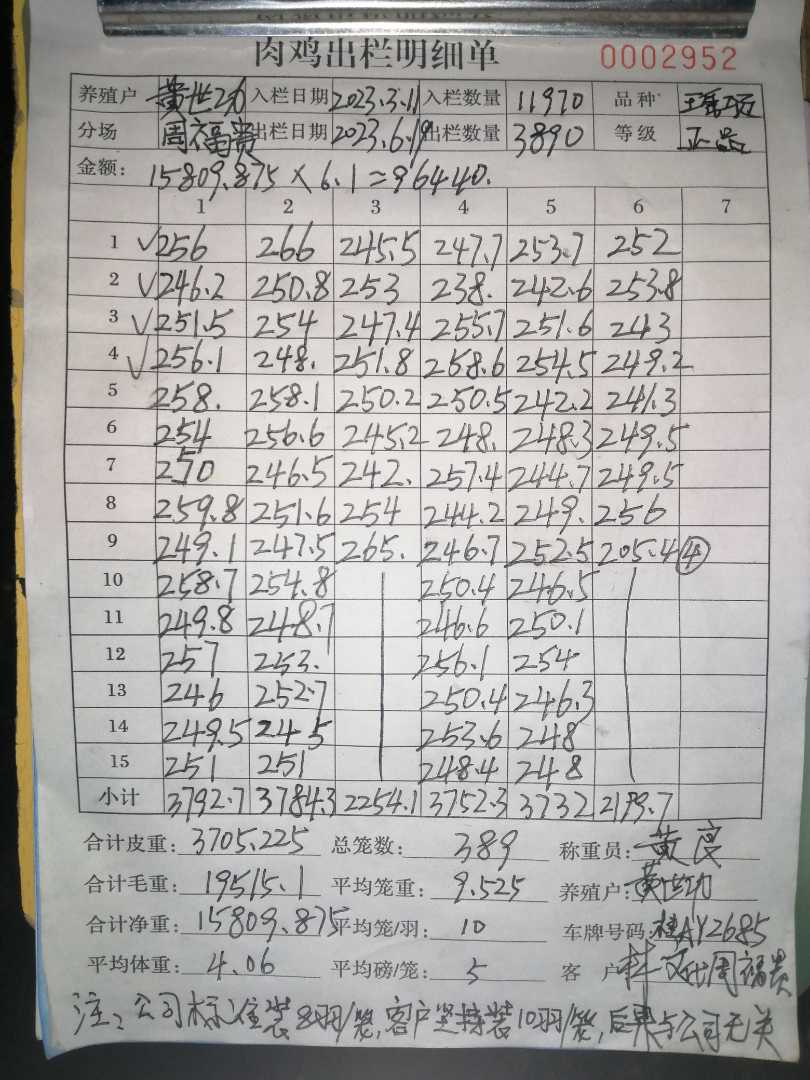 肉鸡出栏明细单 0002952
养殖户 黄世功 入栏日期 2023.3.11 入栏数量 11970 品种 瑶项
分场 周福贵 出栏日期 2023.6.19 出栏数量 3890 等级 正品
金额: 15809.875×6.1=96440.
1 2 3 4 5 6 7
1 √256 266 245.5 247.7 253.7 252
2 √246.2 250.8 253 238. 242.6 253.8
3 √251.5 254 247.4 255.7 251.6 243
4 √256.1 248. 251.8 268.6 254.5 249.2
5 258. 258.1 250.2 250.5 242.2 241.3
6 254 256.6 245.2 248. 248.3 249.5
7 250 246.5 242. 257.4 244.7 249.5
8 259.8 251.6 254 244.2 249. 256
9 249.1 247.5 265. 246.7 252.5 205.4 ④
10 258.7 254.8 250.4 246.5
11 249.8 248.7 246.6 250.1
12 257 253. 256.1 254
13 246 252.7 250.4 246.3
14 249.5 245 253.6 248
15 251 251 248.4 248
小计 3792.7 3784.3 2254.1 3752.3 3732 2199.7
合计皮重: 3705.225 总笼数: 389 称重员: 黄良
合计毛重: 19515.1 平均笼重: 9.525 养殖户: 黄世功
合计净重: 15809.875 平均笼/羽: 10 车牌号码: 桂AY2685
平均体重: 4.06 平均磅/笼: 5 客户 代周福贵
注:公司标准装8羽/笼,客户坚持装10羽/笼,后果与公司无关